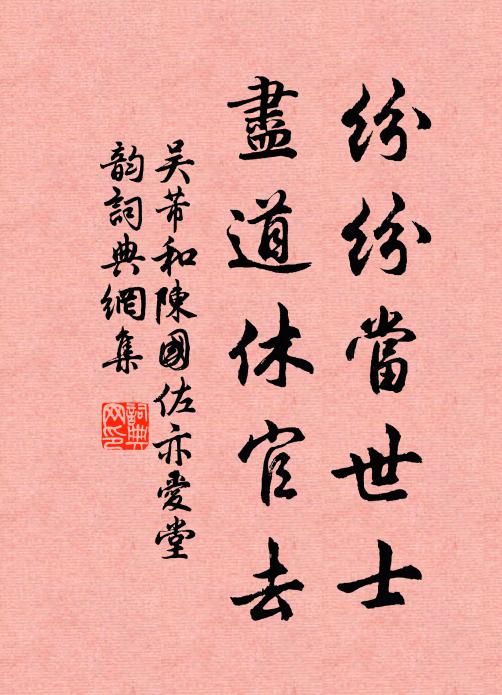 紛紛當世士
盡道休官去
吴芾和陳國佐亦愛堂
韵詞典網集
詞典网印